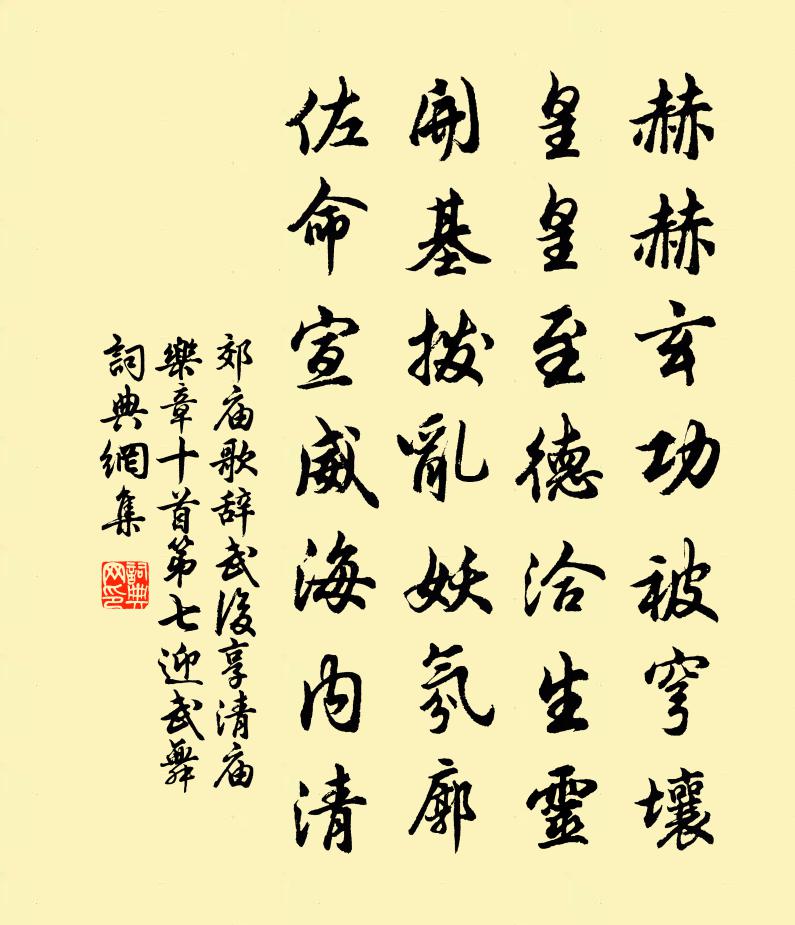 赫赫玄功被穹壤
皇皇至德洽生靈
開基撥亂妖氛廓
佐命宣威海内清
郊庙歌辞武後享清庙
樂章十首第七迎武舞
詞典網集
詞典
网印